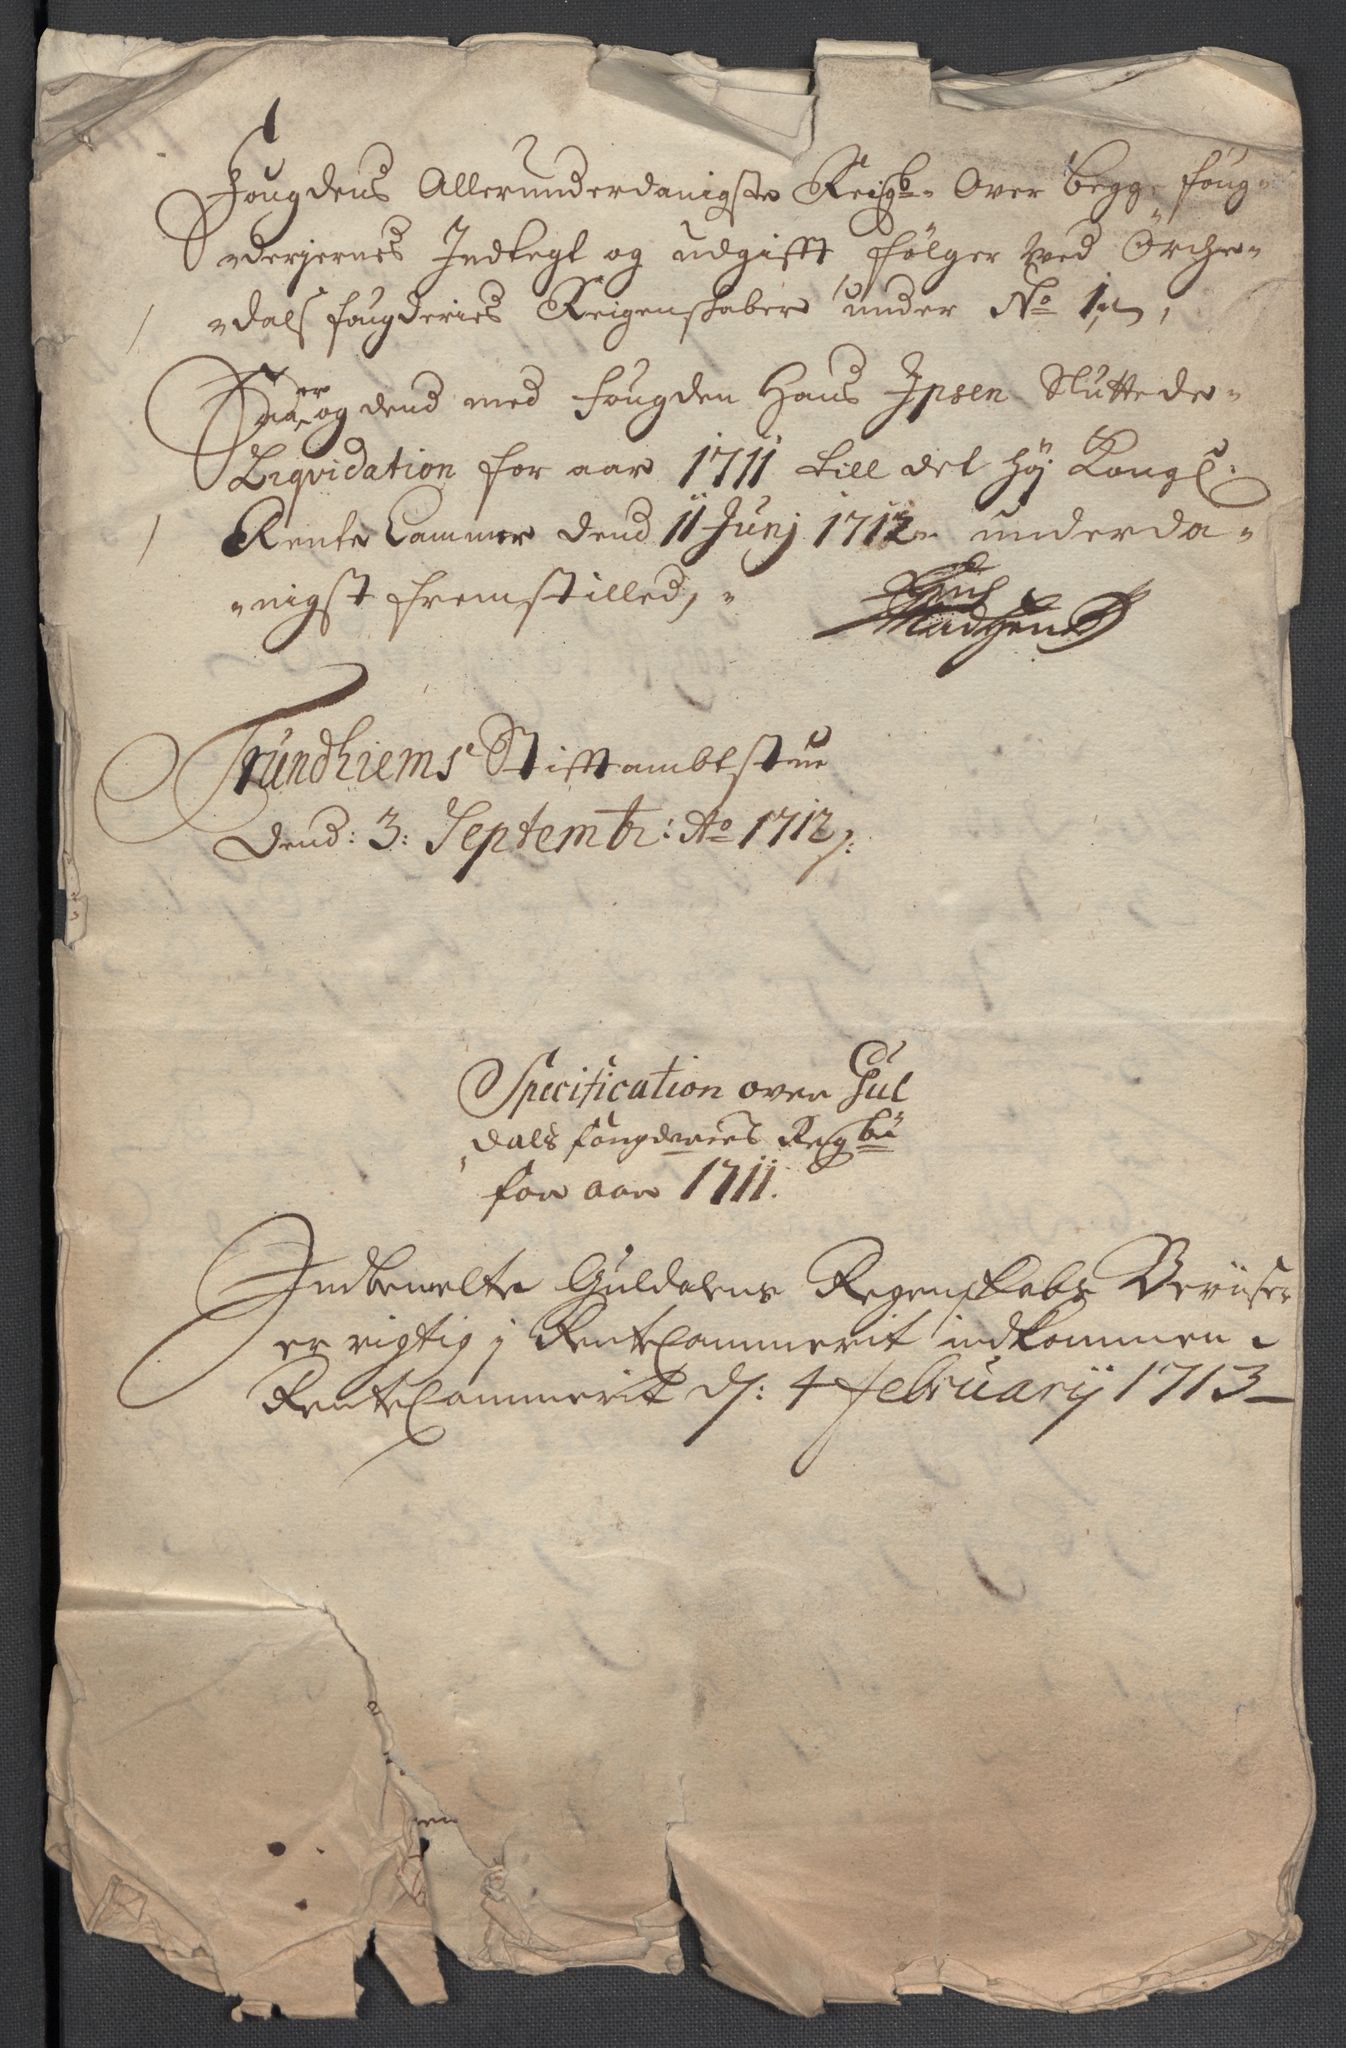 Fougdens Allerunderdanigste Reigb: Over begge foug-
-derjernes Indtegt og udgifft følger ved Örche-
/ -dals fougderies Reigenskaber under No 1,
og dend med fougden Hans Ipsen Sluttede
Liqvidation for aar 1711 till det Höj Kongl:
/ Rente Cammer dend 11 Junj 1712 underda-
-nigst fremstilled,
Trundhiems Stifftambtstue
Dend: 3: Septembr: Ao 1712
Specification over Gul
dals fougderies Regb
for aar 1711.
Indbemelte Guldalens Regenskabs Beviiser
er rigtig j RenteCammerit indkommen
RenteCammerit d: 4 februarij 1713